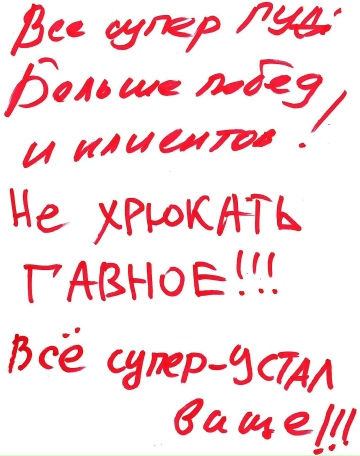 Все супер ГУД!
Больше побед
и клиентов!
Не ХРЮКАТЬ
ГАВНОЕ!!!
Всё супер-УСТАЛ
ваще!!!